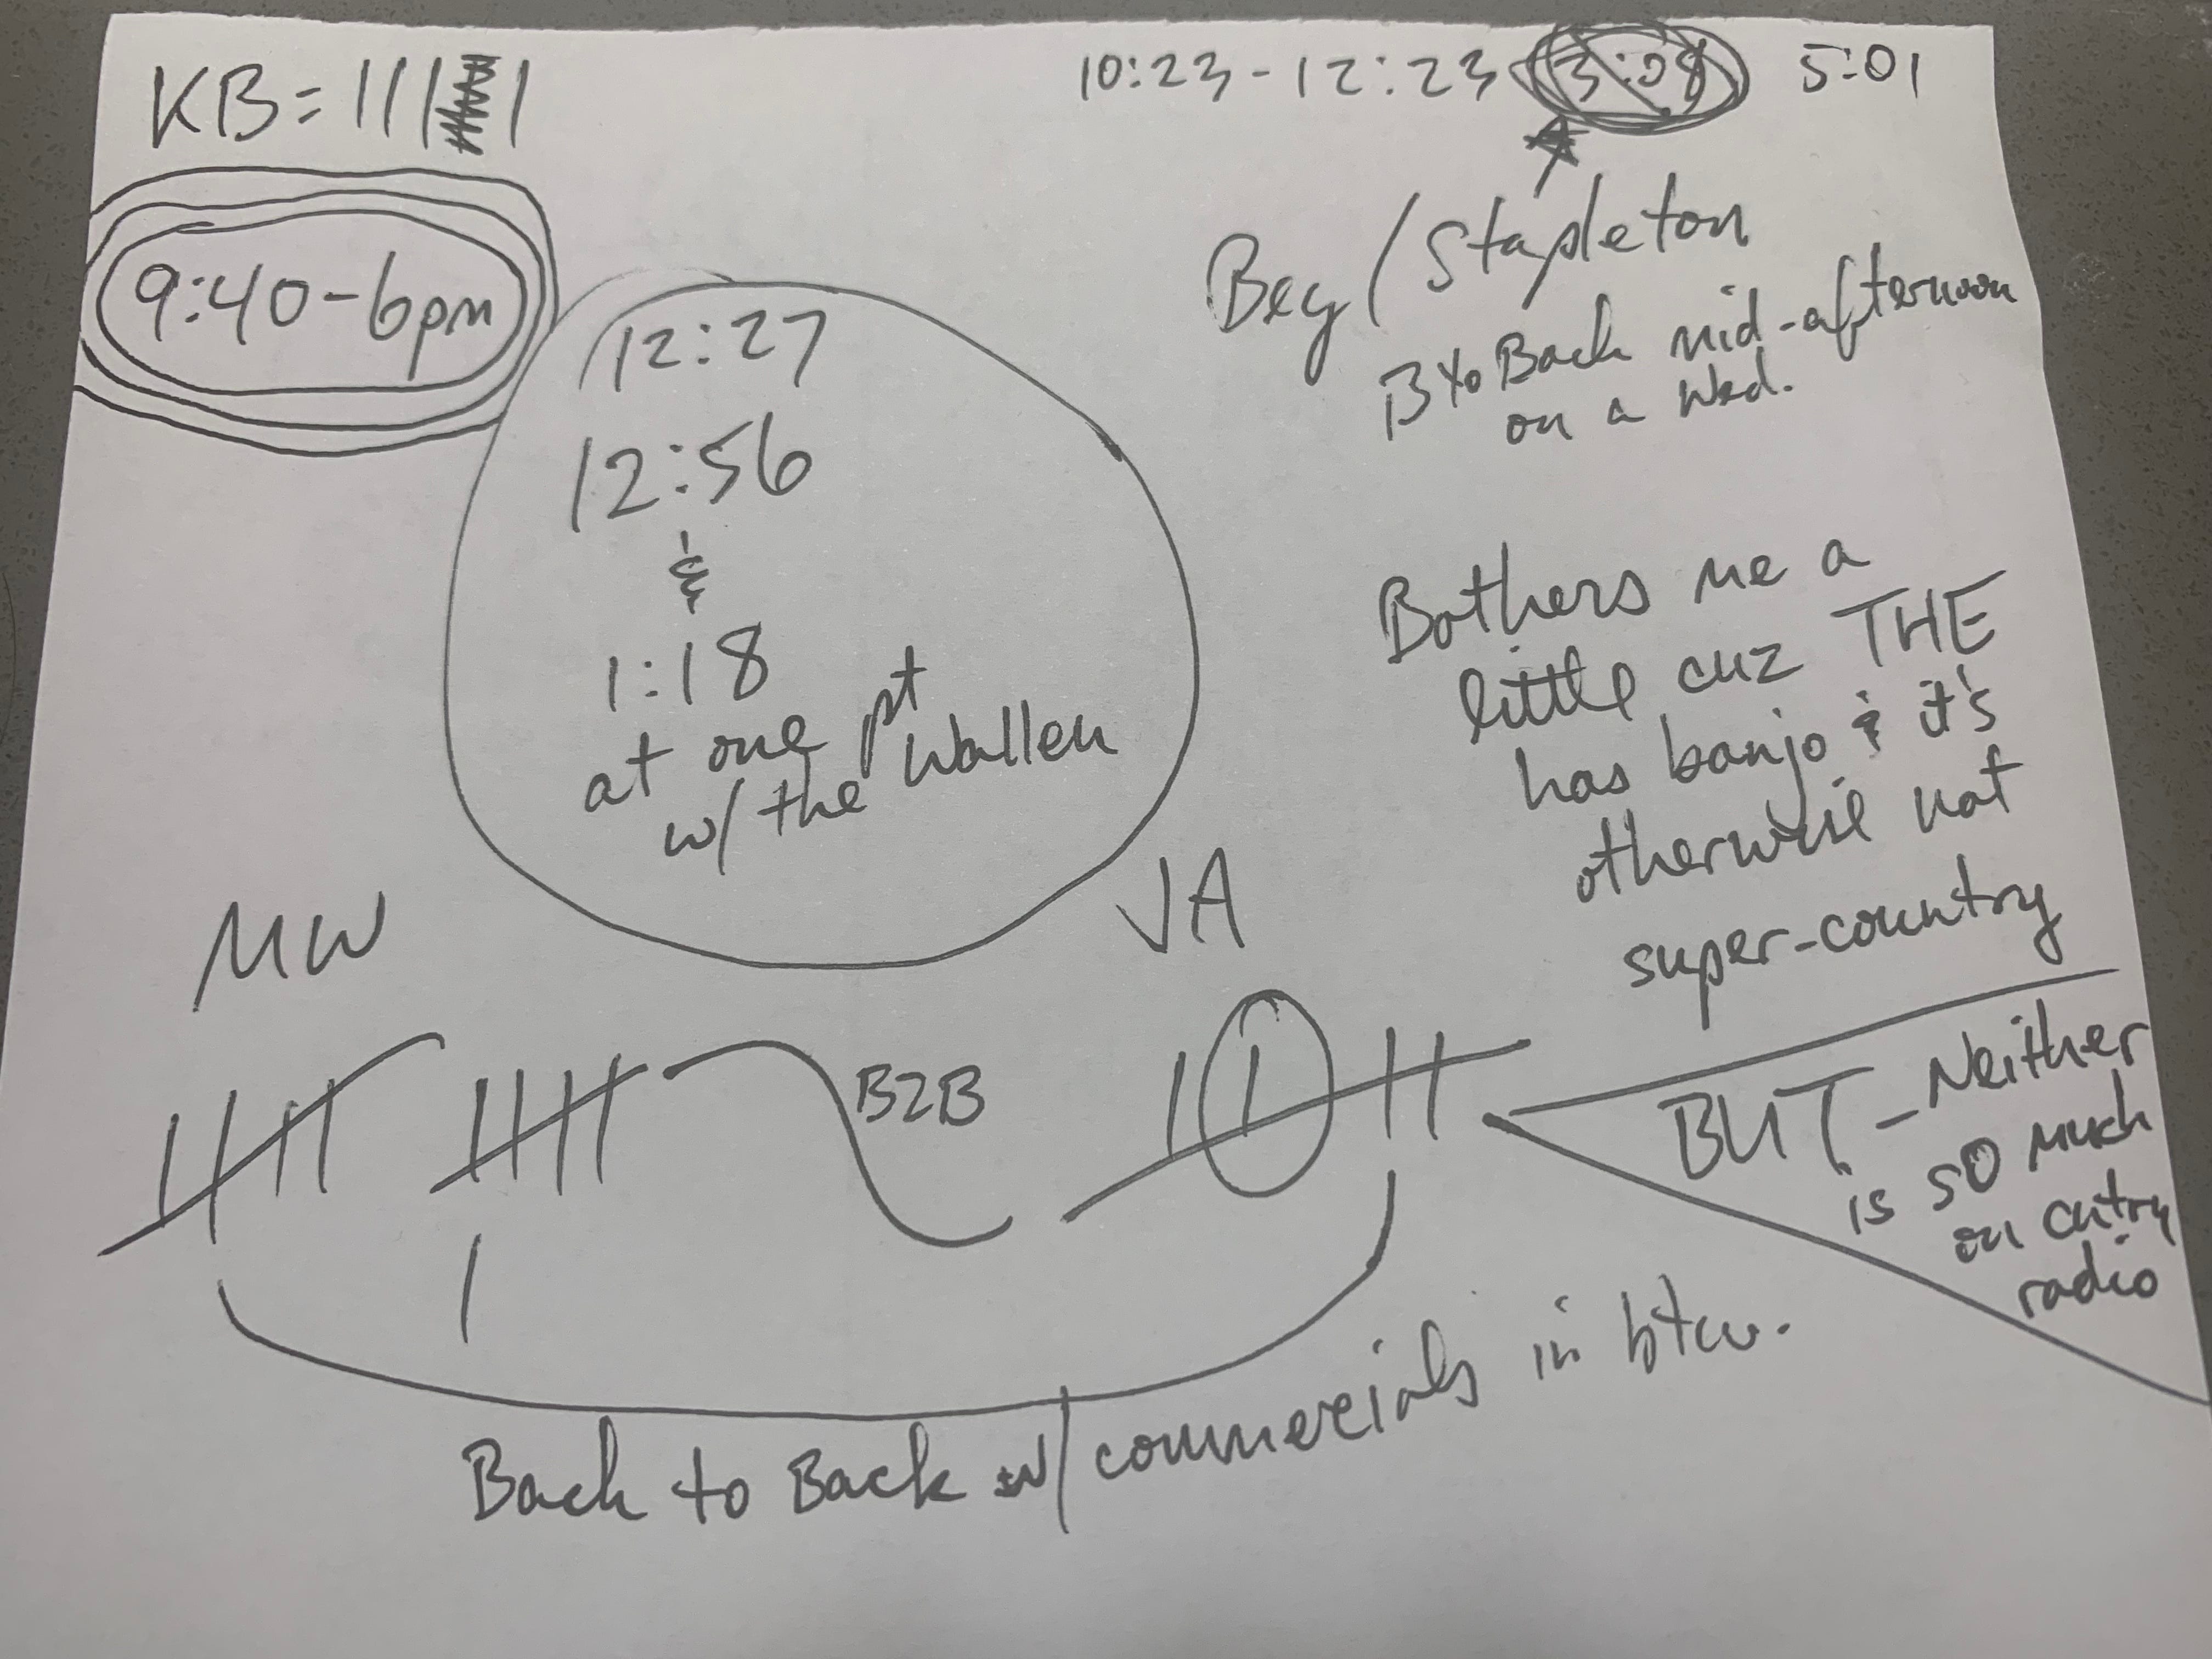 KB = 111 1
10:23 - 12:23 3:08 5:01
9:40-6pm
Bey/Stapleton
B to Back mid-afternoon
on a Wed.
12:27
12:56
&
1:18
at one pt
w/ the Wallen
Bothers me a
little cuz THE
has banjo & it's
otherwise not
super-country
MW
JA
B2B
BUT - Neither
is SO much
on cntry
radio
Back to Back w/ commercials in btw.